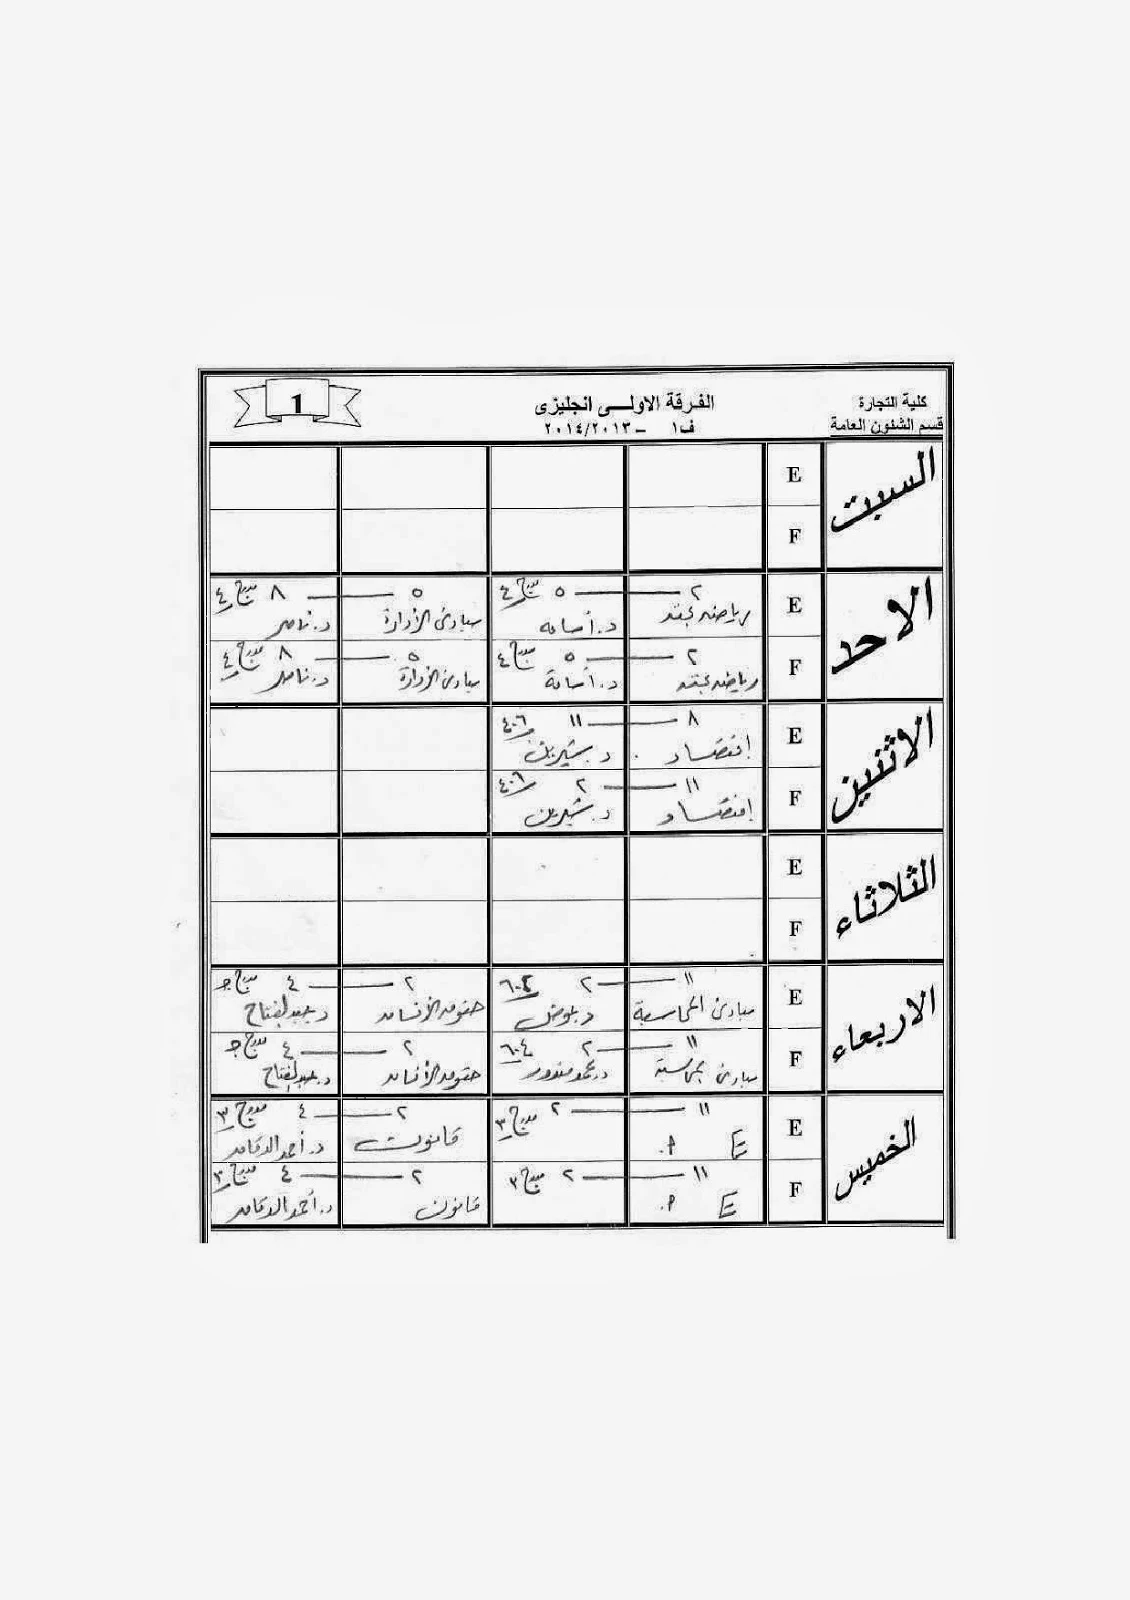 كلية التجارة
قسم الشئون العامة
الفرقة الاولى انجليزى
ف١ – ٢٠١٤/٢٠١٣
1
السبت
E
F
الاحد
E
٢ — ٥ مدرج ٤
٥ — ٨ مدرج ٤
رياضه بحته د. أسامه
مبادئ الإدارة د. ناصر
F
٢ — ٥ مدرج ٤
٥ — ٨ مدرج ٤
رياضه بحته د. أسامة
مبادئ الإدارة د. ناصر
الاثنين
E
٨ — ١١ ٤٠٦
إقتصاد د. شيرين
F
١١ — ٢ ٤٠٦
إقتصاد د. شيرين
الثلاثاء
E
F
الاربعاء
E
١١ — ٢
٢ — ٤ مدرج
مبادئ المحاسبة
حقوق الإنسان د. عبدالفتاح
F
١١ — ٢ ٦٠٤
٢ — ٤ مدرج
مبادئ محاسبة د. محمد مندور
حقوق الإنسان د. عبدالفتاح
الخميس
E
١١ — ٢ مدرج ٣
٢ — ٤ مدرج ٣
E .A
قانون د. أحمد
F
١١ — ٢ مدرج ٣
٢ — ٤ مدرج ٣
E .A
قانون د. أحمد